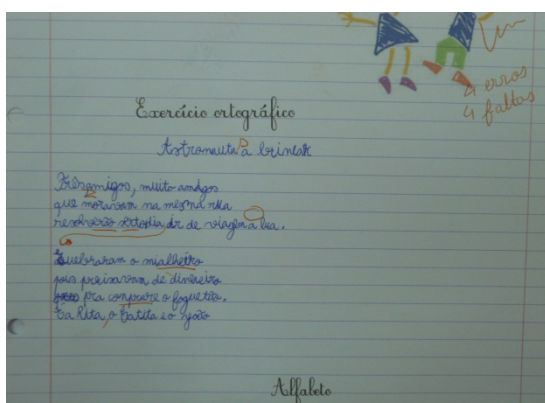 4 erros
4 faltas
Exercício ortográfico
Astronauta a brincar
Três amigos, muito amigos
que moravam na mesma rua
resolverão outodia dr de viagem a lua.
Quebraram o mialheiro
pois preisavam de dinheiro
pra conprare o foguetão.
Ea Rita, o Batata eo
Alfabeto